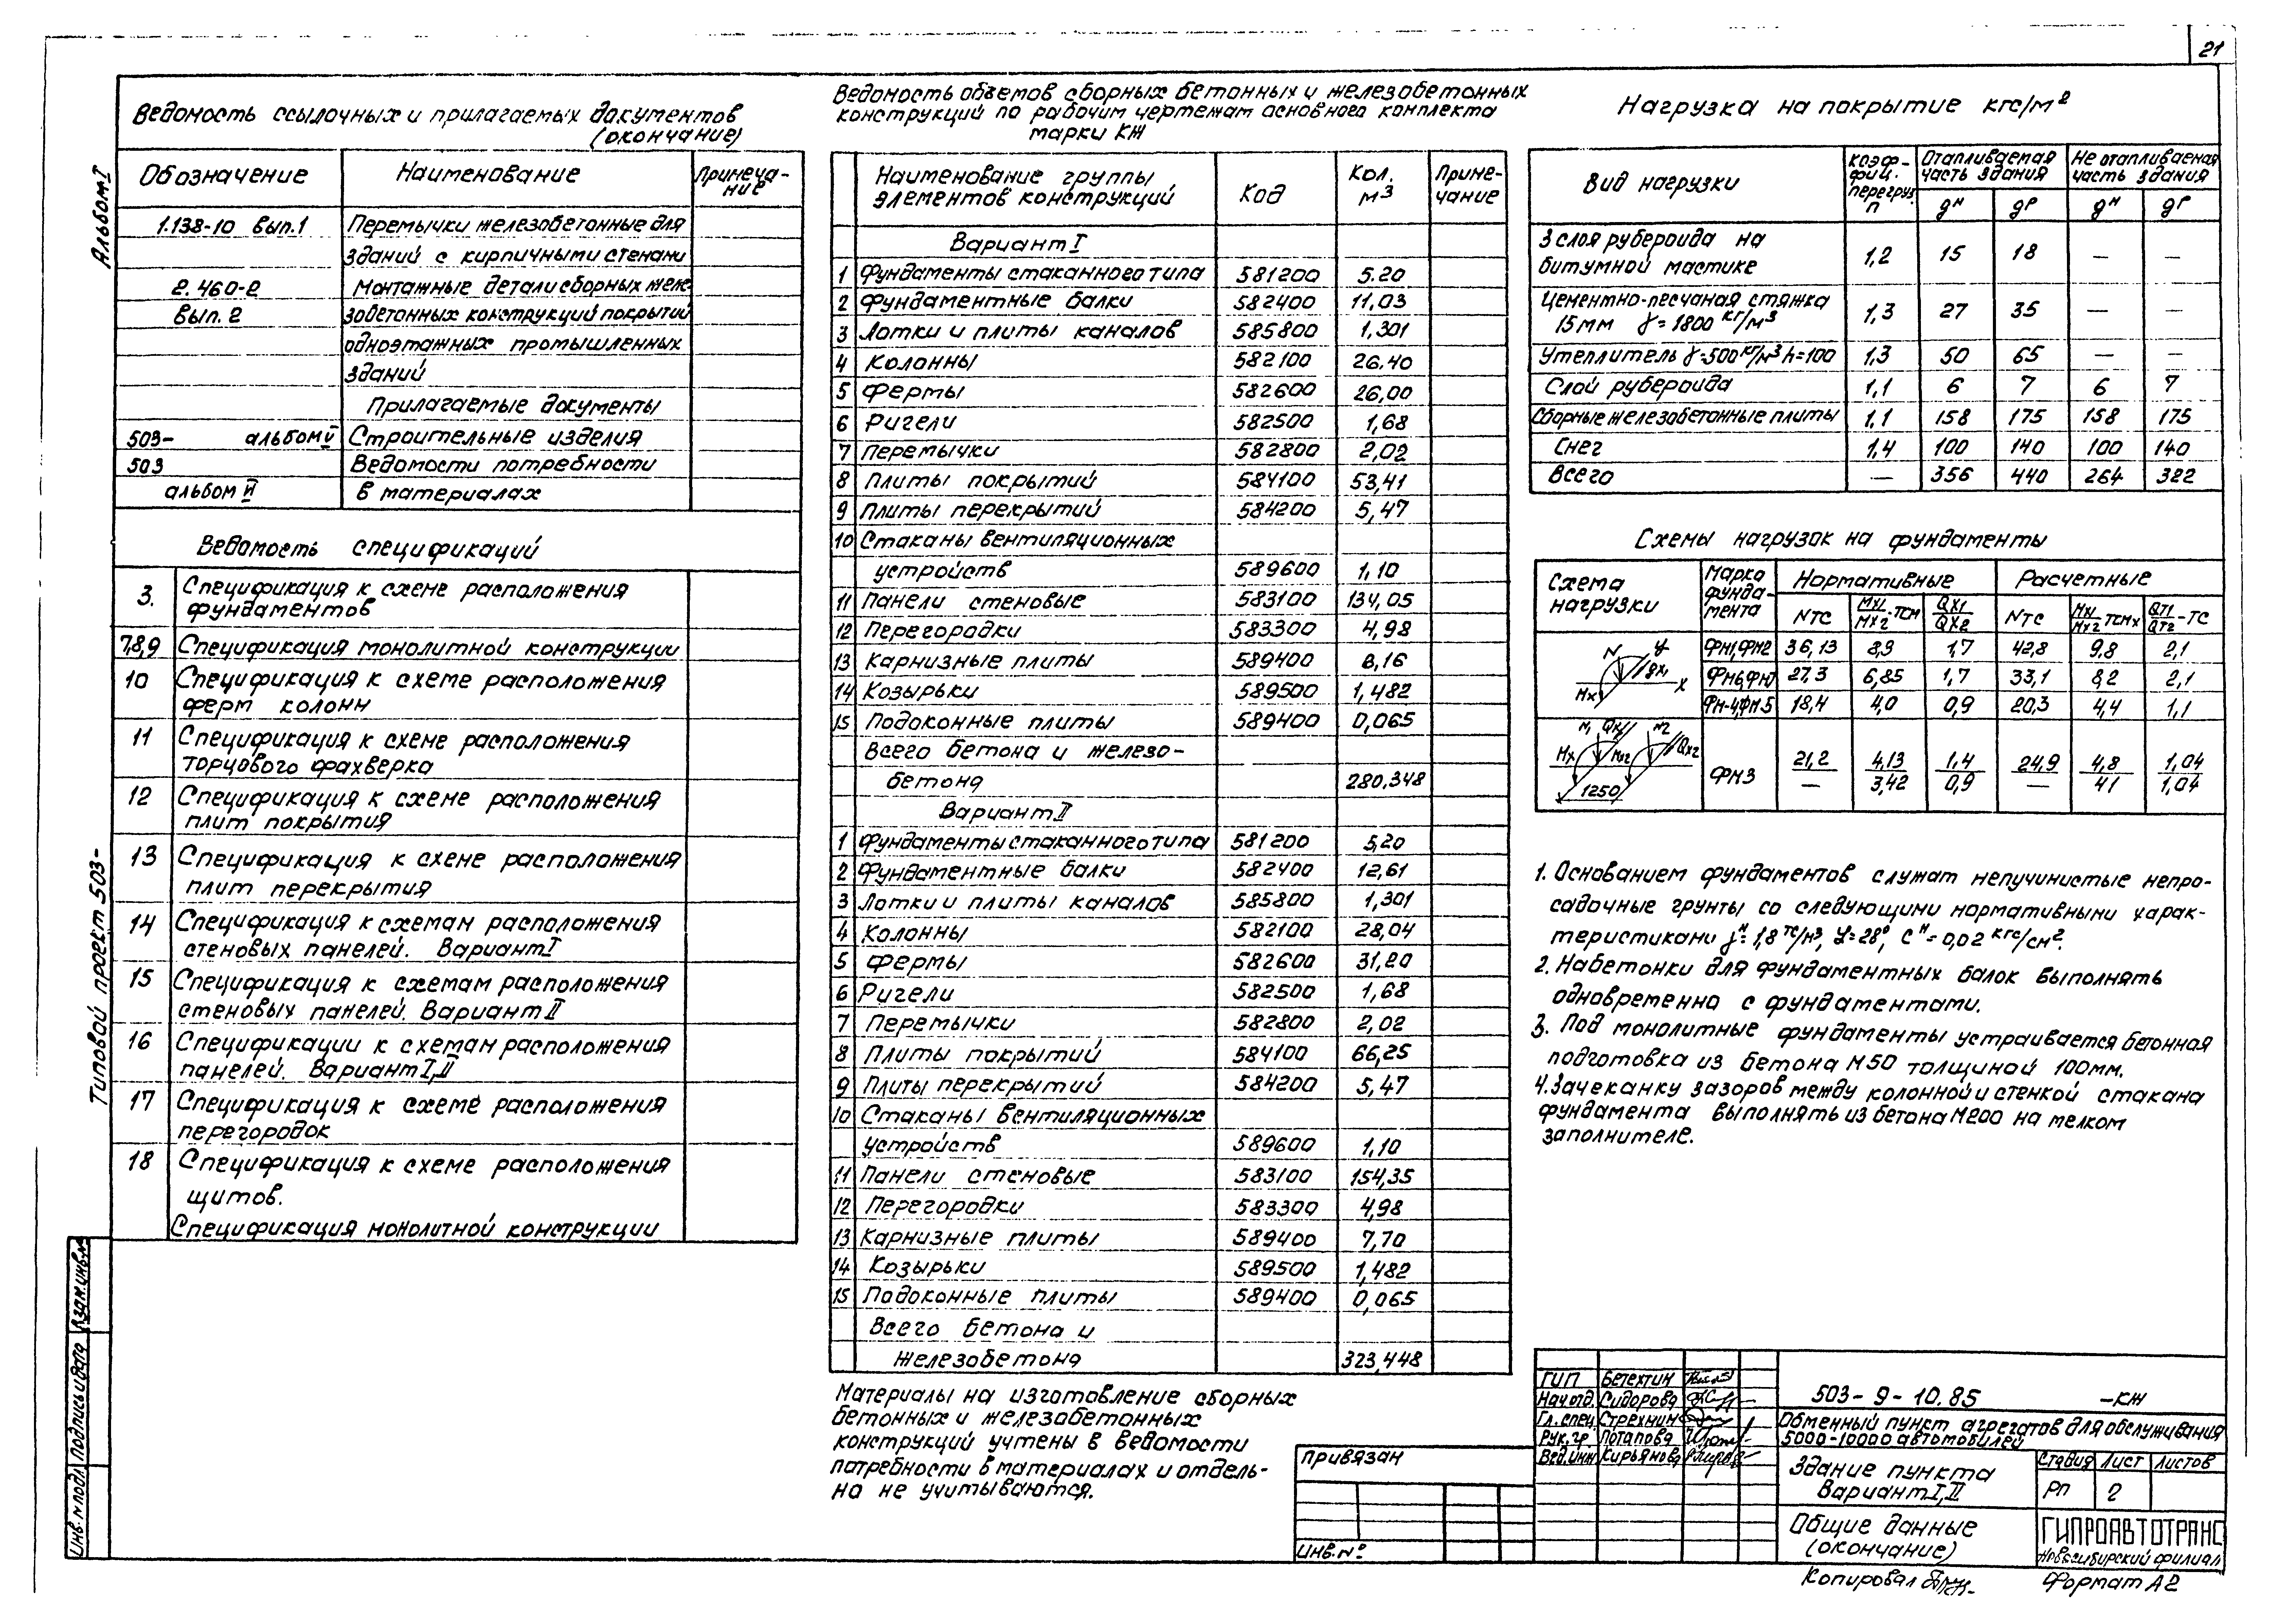 21
Альбом I
Типовой проект 503-
Ведомость ссылочных и прилагаемых документов
(окончание)
Обозначение Наименование Примеча-
ние
1.138-10 вып.1 Перемычки железобетонные для
зданий с кирпичными стенами
2.460-2 Монтажные детали сборных желе-
вып. 2 зобетонных конструкций покрытий
одноэтажных промышленных
зданий
Прилагаемые документы
503- альбом V Строительные изделия
503 Ведомости потребности
альбом VI в материалах
Ведомость спецификаций
3. Спецификация к схеме расположения
фундаментов
7,8,9 Спецификация монолитной конструкции
10 Спецификация к схеме расположения
ферм колонн
11 Спецификация к схеме расположения
торцового фахверка
12 Спецификация к схеме расположения
плит покрытия
13 Спецификация к схеме расположения
плит перекрытия
14 Спецификация к схемам расположения
стеновых панелей. Вариант I
15 Спецификация к схемам расположения
стеновых панелей. Вариант II
16 Спецификации к схемам расположения
панелей. Вариант I, II
17 Спецификация к схеме расположения
перегородок
18 Спецификация к схеме расположения
щитов.
Спецификация монолитной конструкции
Ведомость объемов сборных бетонных и железобетонных
конструкций по рабочим чертежам основного комплекта
марки КЖ
Наименование группы
элементов конструкций Код Кол.
м3 Приме-
чание
Вариант I
1 Фундаменты стаканного типа 581200 5.20
2 Фундаментные балки 582400 11,03
3 Лотки и плиты каналов 585800 1,301
4 Колонны 582100 26.40
5 Фермы 582600 26,00
6 Ригели 582500 1,68
7 Перемычки 582800 2,02
8 Плиты покрытий 584100 53,41
9 Плиты перекрытий 584200 5,47
10 Стаканы вентиляционных
устройств 589600 1,10
11 Панели стеновые 583100 134,05
12 Перегородки 583300 4,98
13 Карнизные плиты 589400 8,16
14 Козырьки 589500 1,482
15 Подоконные плиты 589400 0,065
Всего бетона и железо-
бетона 280,348
Вариант II
1 Фундаменты стаканного типа 581200 5,20
2 Фундаментные балки 582400 12,61
3 Лотки и плиты каналов 585800 1,301
4 Колонны 582100 28,04
5 Фермы 582600 31,20
6 Ригели 582500 1,68
7 Перемычки 582800 2,02
8 Плиты покрытий 584100 66,25
9 Плиты перекрытий 584200 5,47
10 Стаканы вентиляционных
устройств 589600 1,10
11 Панели стеновые 583100 154,35
12 Перегородки 583300 4,98
13 Карнизные плиты 589400 7,70
14 Козырьки 589500 1,482
15 Подоконные плиты 589400 0,065
Всего бетона и
железобетона 323,448
Материалы на изготовление сборных
бетонных и железобетонных
конструкций учтены в ведомости
потребности в материалах и отдель-
но не учитываются.
Нагрузка на покрытие кгс/м²
Вид нагрузки Коэф-
фиц.
перегруз.
п Отапливаемая
часть здания Не отапливаемая
часть здания
gн gр gн gр
3 слоя рубероида на
битумной мастике 1,2 15 18 — —
Цементно-песчаная стяжка
15мм γ=1800 кг/м3 1,3 27 35 — —
Утеплитель γ=500 кг/м3 h=100 1,3 50 65 — —
Слой рубероида 1,1 6 7 6 7
Сборные железобетонные плиты 1,1 158 175 158 175
Снег 1,4 100 140 100 140
Всего — 356 440 264 322
Схемы нагрузок на фундаменты
Схема
нагрузки Марка
фунда-
мента Нормативные Расчетные
NTC Mx1/Mx2-тсм Qx1/Qx2 NTC Mx1/Mx2 тсмх QT1/QT2-тс
N y Qx1 Mx x
ФМ1,ФМ2 36,13 8,9 1,7 42,8 9,8 2,1
ФМ6,ФМ7 27.3 6,85 1,7 33,1 8,2 2,1
ФМ-4,ФМ5 18,4 4,0 0,9 20,3 4,4 1,1
Mx Mx2 Qx2 1250
ФМ3 21,2/— 4,13/3,42 1,4/0,9 24,9/— 4,8/41 1,04/1,04
1. Основанием фундаментов служат непучинистые непро-
садочные грунты со следующими нормативными харак-
теристиками γн=1,8 тс/м3, φ=28°, Cн=0,02 кгс/см2.
2. Набетонки для фундаментных балок выполнять
одновременно с фундаментами.
3. Под монолитные фундаменты устраивается бетонная
подготовка из бетона М50 толщиной 100мм.
4. Зачеканку зазоров между колонной и стенкой стакана
фундамента выполнять из бетона М200 на мелком
заполнителе.
Взам.инв.№
Подпись и дата
Инв.№подл
Привязан
Инв.№
ГИП Бетехтин
Нач.отд. Сидорова
Гл.спец. Стрехнин
Рук.гр. Потапова
Вед.инж Кирьянова
503-9-10.85 -КЖ
Обменный пункт агрегатов для обслуживания
5000-10000 автомобилей
Здание пункта
Вариант I, II
Стадия Лист Листов
РП 2
Общие данные
(окончание)
ГИПРОАВТОТРАНС
Новосибирский филиал
Копировал
Формат А2